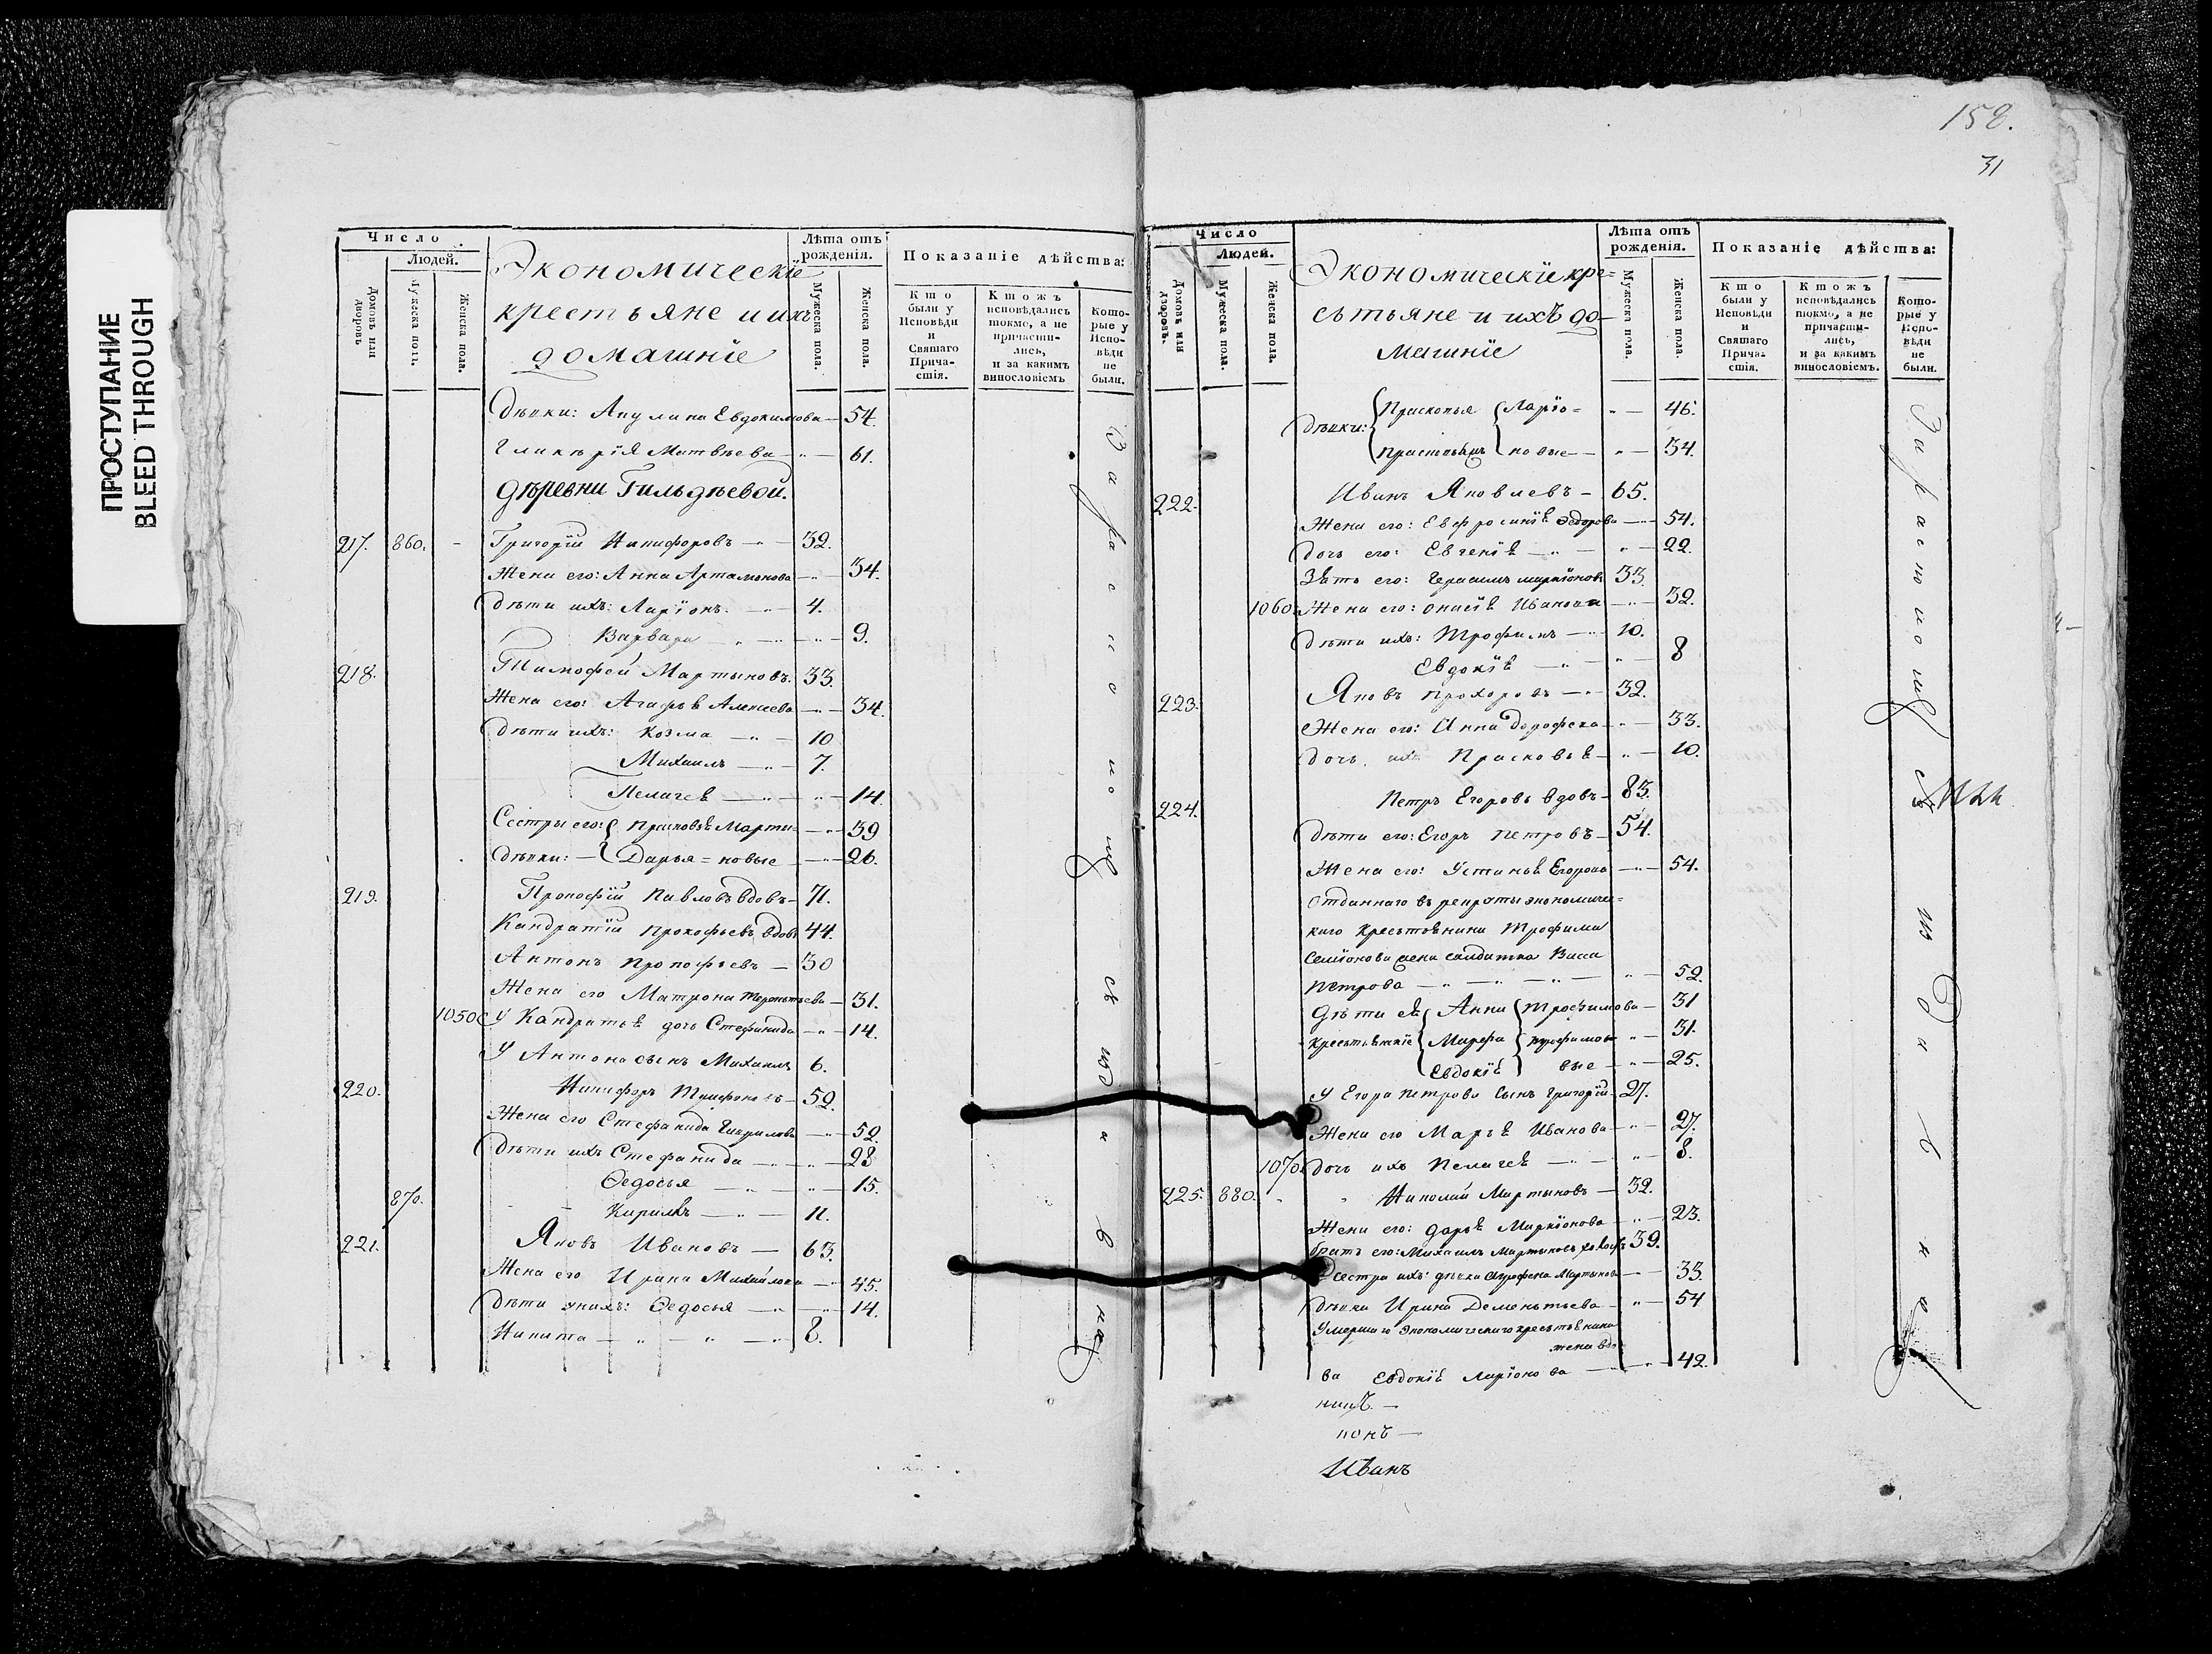 ПРОСТУПАНИЕ
BLEED THROUGH
Число
Людей.
Домовъ или дворовъ
Мужеска полъ.
Женска пола.
Экономическїе
крестьяне и ихъ
домашнїе
Лѣта отъ рожденїя.
Мужеска пола.
Женска пола.
Показанїе дѣйства:
Кто были у Исповѣди и Святаго Причастїя.
Ктожъ исповѣдались токмо, а не причастились, и за какимъ винословїемъ
Которые у Исповѣди не были.
Дѣвки: Акулина Евдокимова — 54.
Гликѣрїя Матвѣева — 61.
Деревни Гильдѣевой.
217. 860. - Григорїй Никифоровъ — 32.
Жена его: Анна Артамонова — 34.
Дѣти ихъ: Ларїонъ. — 4.
Варвара — 9.
218. Тимофей Мартыновъ. 33.
Жена его: Агафьѣ Алексеева — 34.
Дѣти ихъ: Козма — 10
Михаилъ — 7.
Пелагеѣ — 14.
Сестры его: Прасковьѣ Марти= — 39
дѣвки: — Дарья = новые — 26.
219. Прокофїй Павловъ вдовъ — 71.
Кандратїй Прокофьевъ вдовъ 44.
Антонъ Прокофьевъ — 30
Жена его Матрона Терентьева — 31.
1050 У Кандратьѣ дочь Стефанида — 14.
У Антона сынъ Михаилъ 6.
220. Никифоръ — 52.
Жена его Стефанида Гаврилова — 52.
Дѣти ихъ Стефанида — 28
Ѳедосья — 15.
870. Кирилъ — 11.
221. Яковъ Ивановъ — 63.
Жена его Ирина Михайлова — 45.
Дѣти ихъ: Ѳедосья — 14.
Никита — 8.
158.
31
Число
Людей.
Домовъ или дворовъ.
Мужеска пола.
Женска пола.
Экономическїе кре=
стьяне и ихъ до-
машнїе
Лѣта отъ рожденїя.
Мужеска пола.
Женска пола.
Показанїе дѣйства:
Кто были у Исповѣди и Святаго Причастїя.
Ктожъ исповѣдались токмо, а не причастились, и за какимъ винословїемъ.
Которые у Исповѣди не были.
Дѣвки: Прасковья Ларїо= — 46.
новые — 34.
222. Иванъ Яковлевъ — 65.
Жена его: Евфросинїѣ Ѳедорова — 54.
Дочь его: Евгенїѣ — 22.
Зять его: Герасимъ 33.
1060. Жена его: Онисїѣ Иванова — 32.
Дѣти ихъ: Трофимъ — 10.
Евдокїѣ — 8
223. Яковъ Прохоровъ — 32.
Жена его: Анна Дорофеева — 33.
Дочь ихъ Прасковьѣ — 10.
224. Петръ Егоровъ вдовъ — 83.
Дѣти его: Егоръ Петровъ — 54.
Жена его: Устиньѣ Егорова — 54.
Отданнаго въ рекруты экономиче=
каго крестьѣнина Трофима
Семїонова жена салдатка Васса
Петрова — 52.
Дѣти еѣ Анна Трофимова — 31
крестьѣнскїе Марфа Трофимо — 31.
Евдокїѣ вые — 25.
У Егора Петрова сынъ Григорїй — 27.
Жена его Марьѣ Иванова — 27.
1070. Дочь ихъ Пелагеѣ — 8.
225. 880. Николай Мартыновъ — 32.
Жена его: Дарьѣ — 23.
братъ его: Михаилъ Мартыновъ холостъ 39.
Сестра ихъ: дѣвка Агрофена Мартынова — 33.
Дѣвка Ирина Дементьева — 54
Умершаго экономическаго крестьѣнина
жена вдо
ва Евдокїѣ Ларїонова — 42.
понъ —
Иванъ